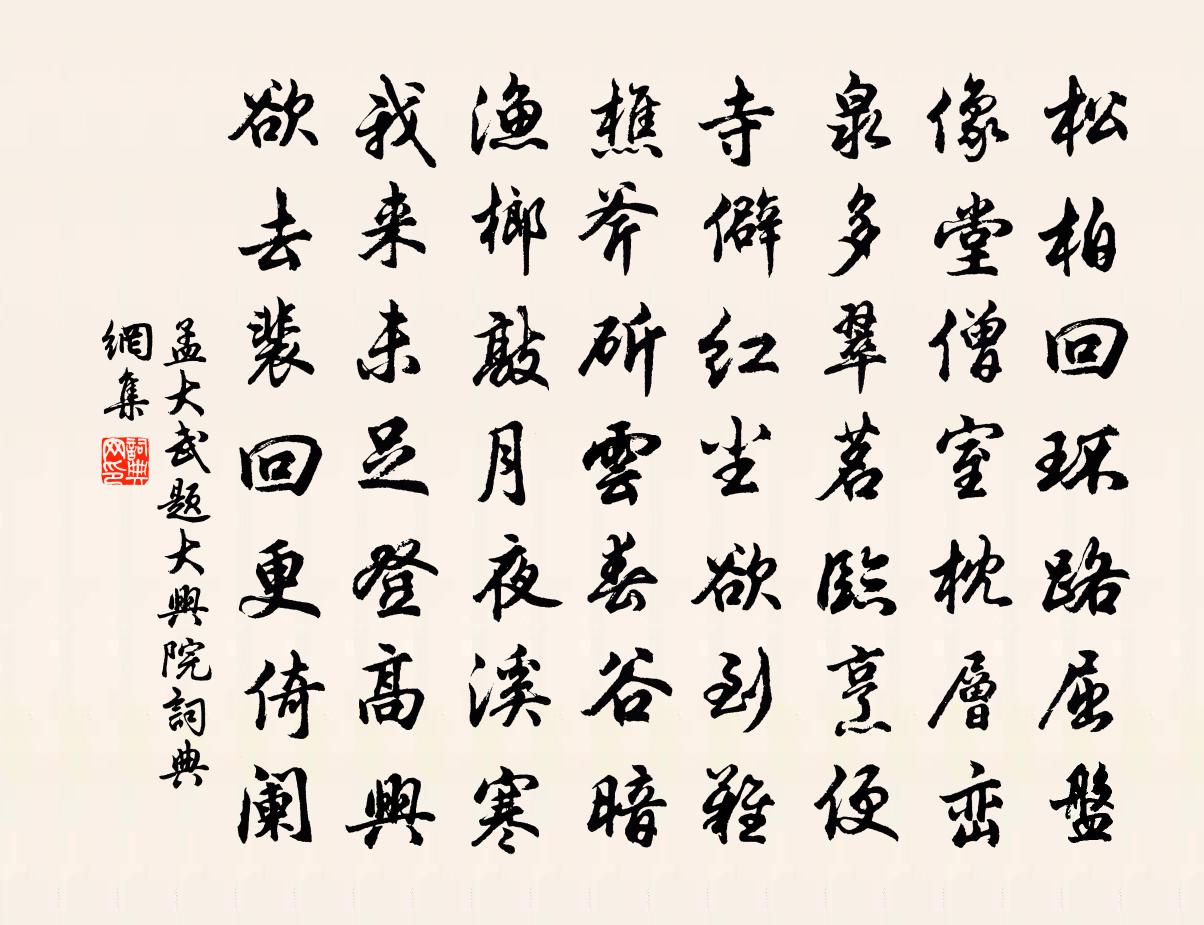 松柏回环路屈盤
像堂僧室枕層巒
泉多翠茗臨烹便
寺僻红尘欲到難
樵斧斫雲春谷暗
漁榔敲月夜溪寒
我来未足登高興
欲去裴回更倚阑
孟大武题大興院詞典
網集
詞典网印